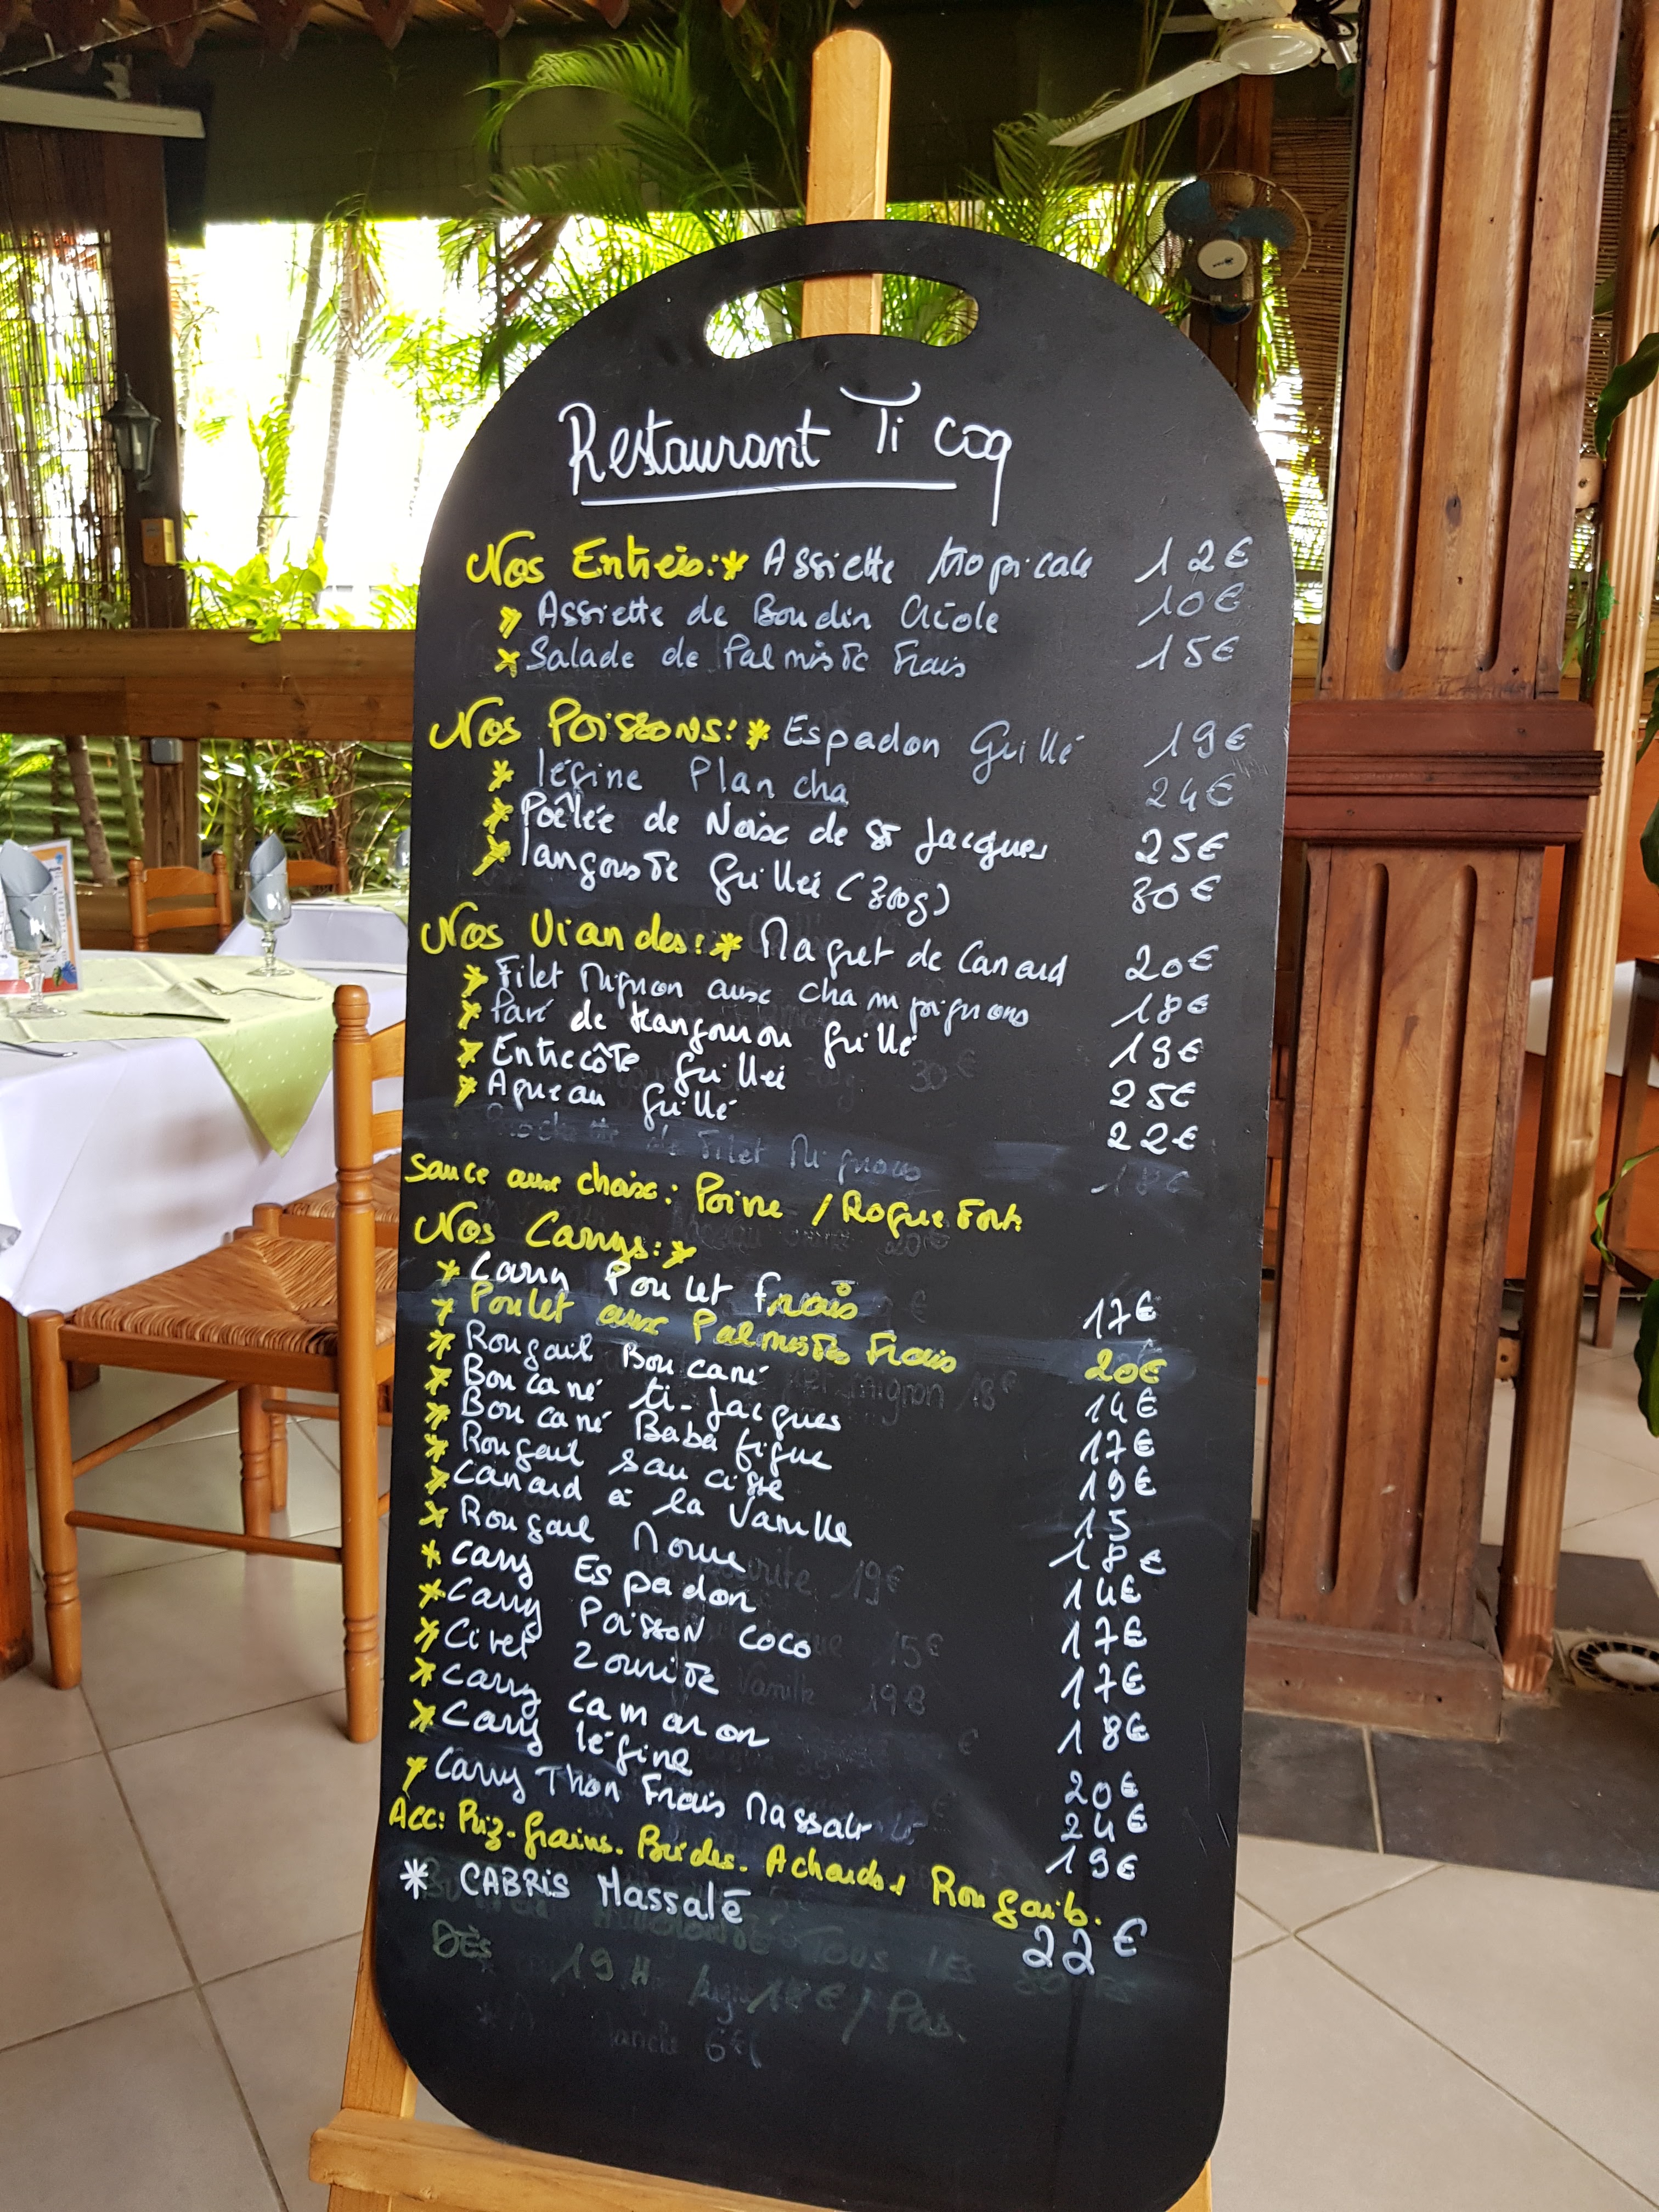 Restaurant Ti coq
Nos Entrées: * Assiette tropicale 12€
* Assiette de Boudin Créole 10€
* Salade de Palmiste Frais 15€
Nos Poissons: * Espadon Grillé 19€
* légine Plancha 24€
* Poêlée de Noix de St Jacques 25€
* langouste Grillée (300g) 30€
Nos Viandes: * Magret de Canard 20€
* Filet Mignon aux champignons 18€
* Pavé de kangourou Grillé 19€
* Entrecôte Grillée 25€
* Agneau Grillé 22€
Filet Mignons 18€
Sauce aux choix: Poivre / Roquefort
Nos Carrys: *
* Carry Poulet frais 17€
* Poulet aux Palmistes Frais 20€
* Rougail Boucané 14€
* Boucané ti-Jacques 17€
* Boucané Baba figue 19€
* Rougail saucisse 15
* Canard à la Vanille 18€
* Rougail Morue 14€
* Carry Espadon 17€
* Carry Poisson coco 17€
* Civet Zourite 18€
* Carry camaron 20€
* Carry légine 24€
* Carry Thon Frais Massalé 19€
Acc: Riz. Grains. Brèdes. Achards & Rougails.
* CABRIS Massalé 22€
DÈS 19H
6€